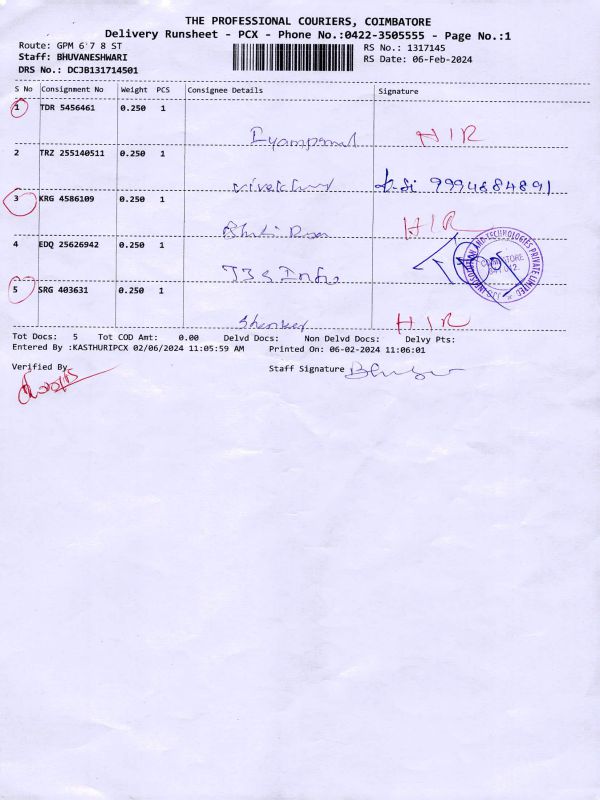 THE PROFESSIONAL COURIERS, COIMBATORE
Delivery Runsheet - PCX - Phone No.:0422-3505555 - Page No.:1
Route: GPM 6 7 8 ST
RS No.: 1317145
Staff: BHUVANESHWARI
RS Date: 06-Feb-2024
DRS No.: DCJB131714501
S No Consignment No Weight PCS Consignee Details Signature
1 TDR 5456461 0.250 1
HIR
2 TRZ 255140511 0.250 1
9994684891
3 KRG 4586109 0.250 1
HIR
4 EDQ 25626942 0.250 1
5 SRG 403631 0.250 1
Shenker HIR
Tot Docs: 5 Tot COD Amt: 0.00 Delvd Docs: Non Delvd Docs: Delvy Pts:
Entered By :KASTHURIPCX 02/06/2024 11:05:59 AM Printed On: 06-02-2024 11:06:01
Verified By
Staff Signature